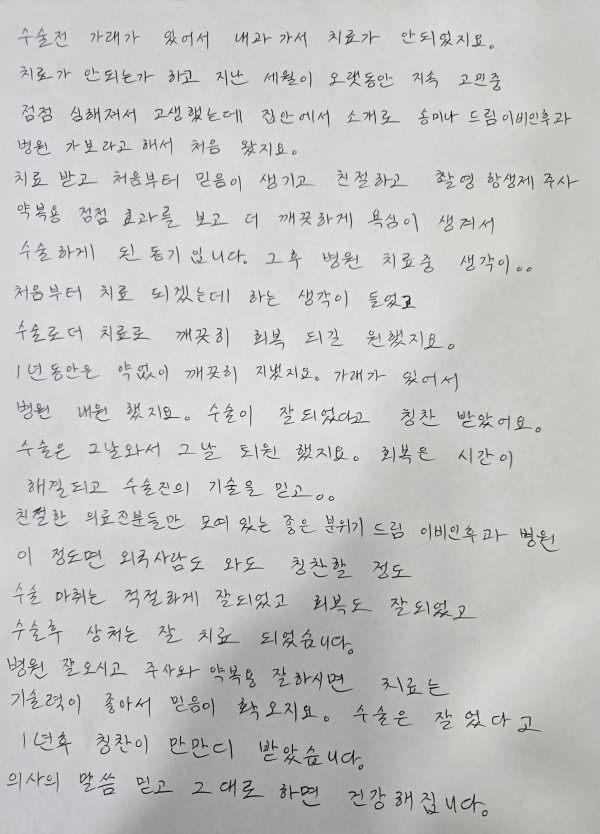 수술전 가래가 있어서 내과 가서 치료가 안되었지요.
치료가 안되는가 하고 지난 세월이 오랫동안 지속 고민중
점점 심해져서 고생했는데 집안에서 소개로 송미나 드림이비인후과
병원 가보라고 해서 처음 왔지요.
치료 받고 처음부터 믿음이 생기고 친절하고 촬영 항생제 주사
약복용 점점 효과를 보고 더 깨끗하게 욕심이 생겨서
수술하게 된 동기입니다. 그후 병원 치료중 생각이..
처음부터 치료 되겠는데 하는 생각이 들었고
수술로더 치료로 깨끗히 회복 되길 원했지요.
1년동안은 약없이 깨끗히 지냈지요. 가래가 있어서
병원 내원 했지요. 수술이 잘되었다고 칭찬 받았어요.
수술은 그날와서 그날 퇴원 했지요. 회복은 시간이
해결되고 수술진의 기술을 믿고..
친절한 의료진분들만 모여 있는 좋은 분위기 드림 이비인후과 병원
이 정도면 외국사람도 와도 칭찬할 정도
수술 마취는 적절하게 잘되었고 회복도 잘되었고
수술후 상처는 잘 치료 되었습니다.
병원 잘오시고 주사와 약복용 잘하시면 치료는
기술력이 좋아서 믿음이 확 오지요. 수술은 잘 었다고
1년후 칭찬이 만만디 받았습니다.
의사의 말씀 믿고 그대로 하면 건강해집니다.